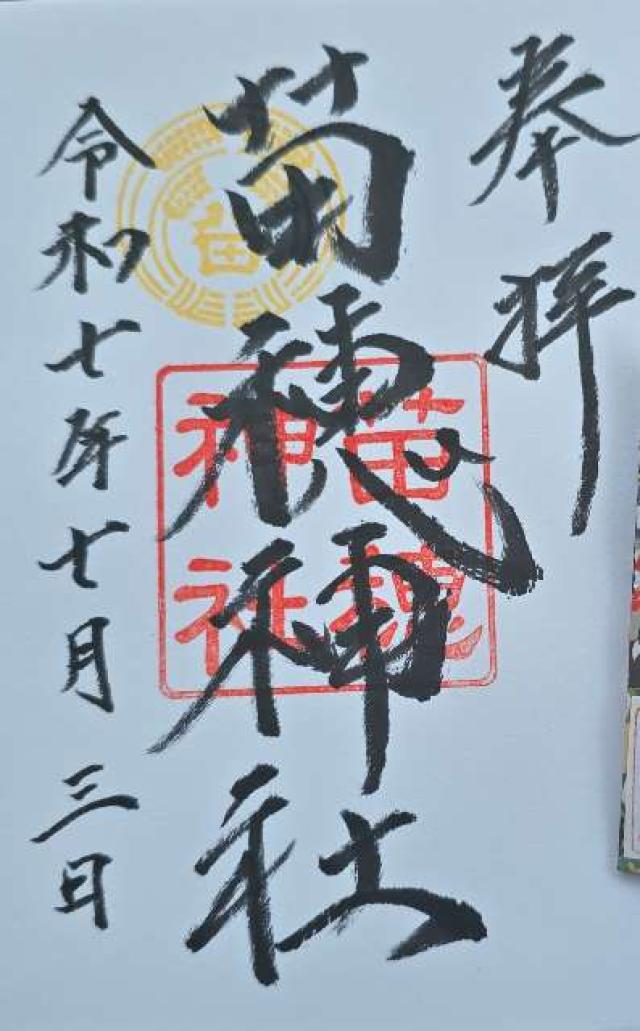 奉拝
苗穂神社
苗穂
神社
令和七年七月三日